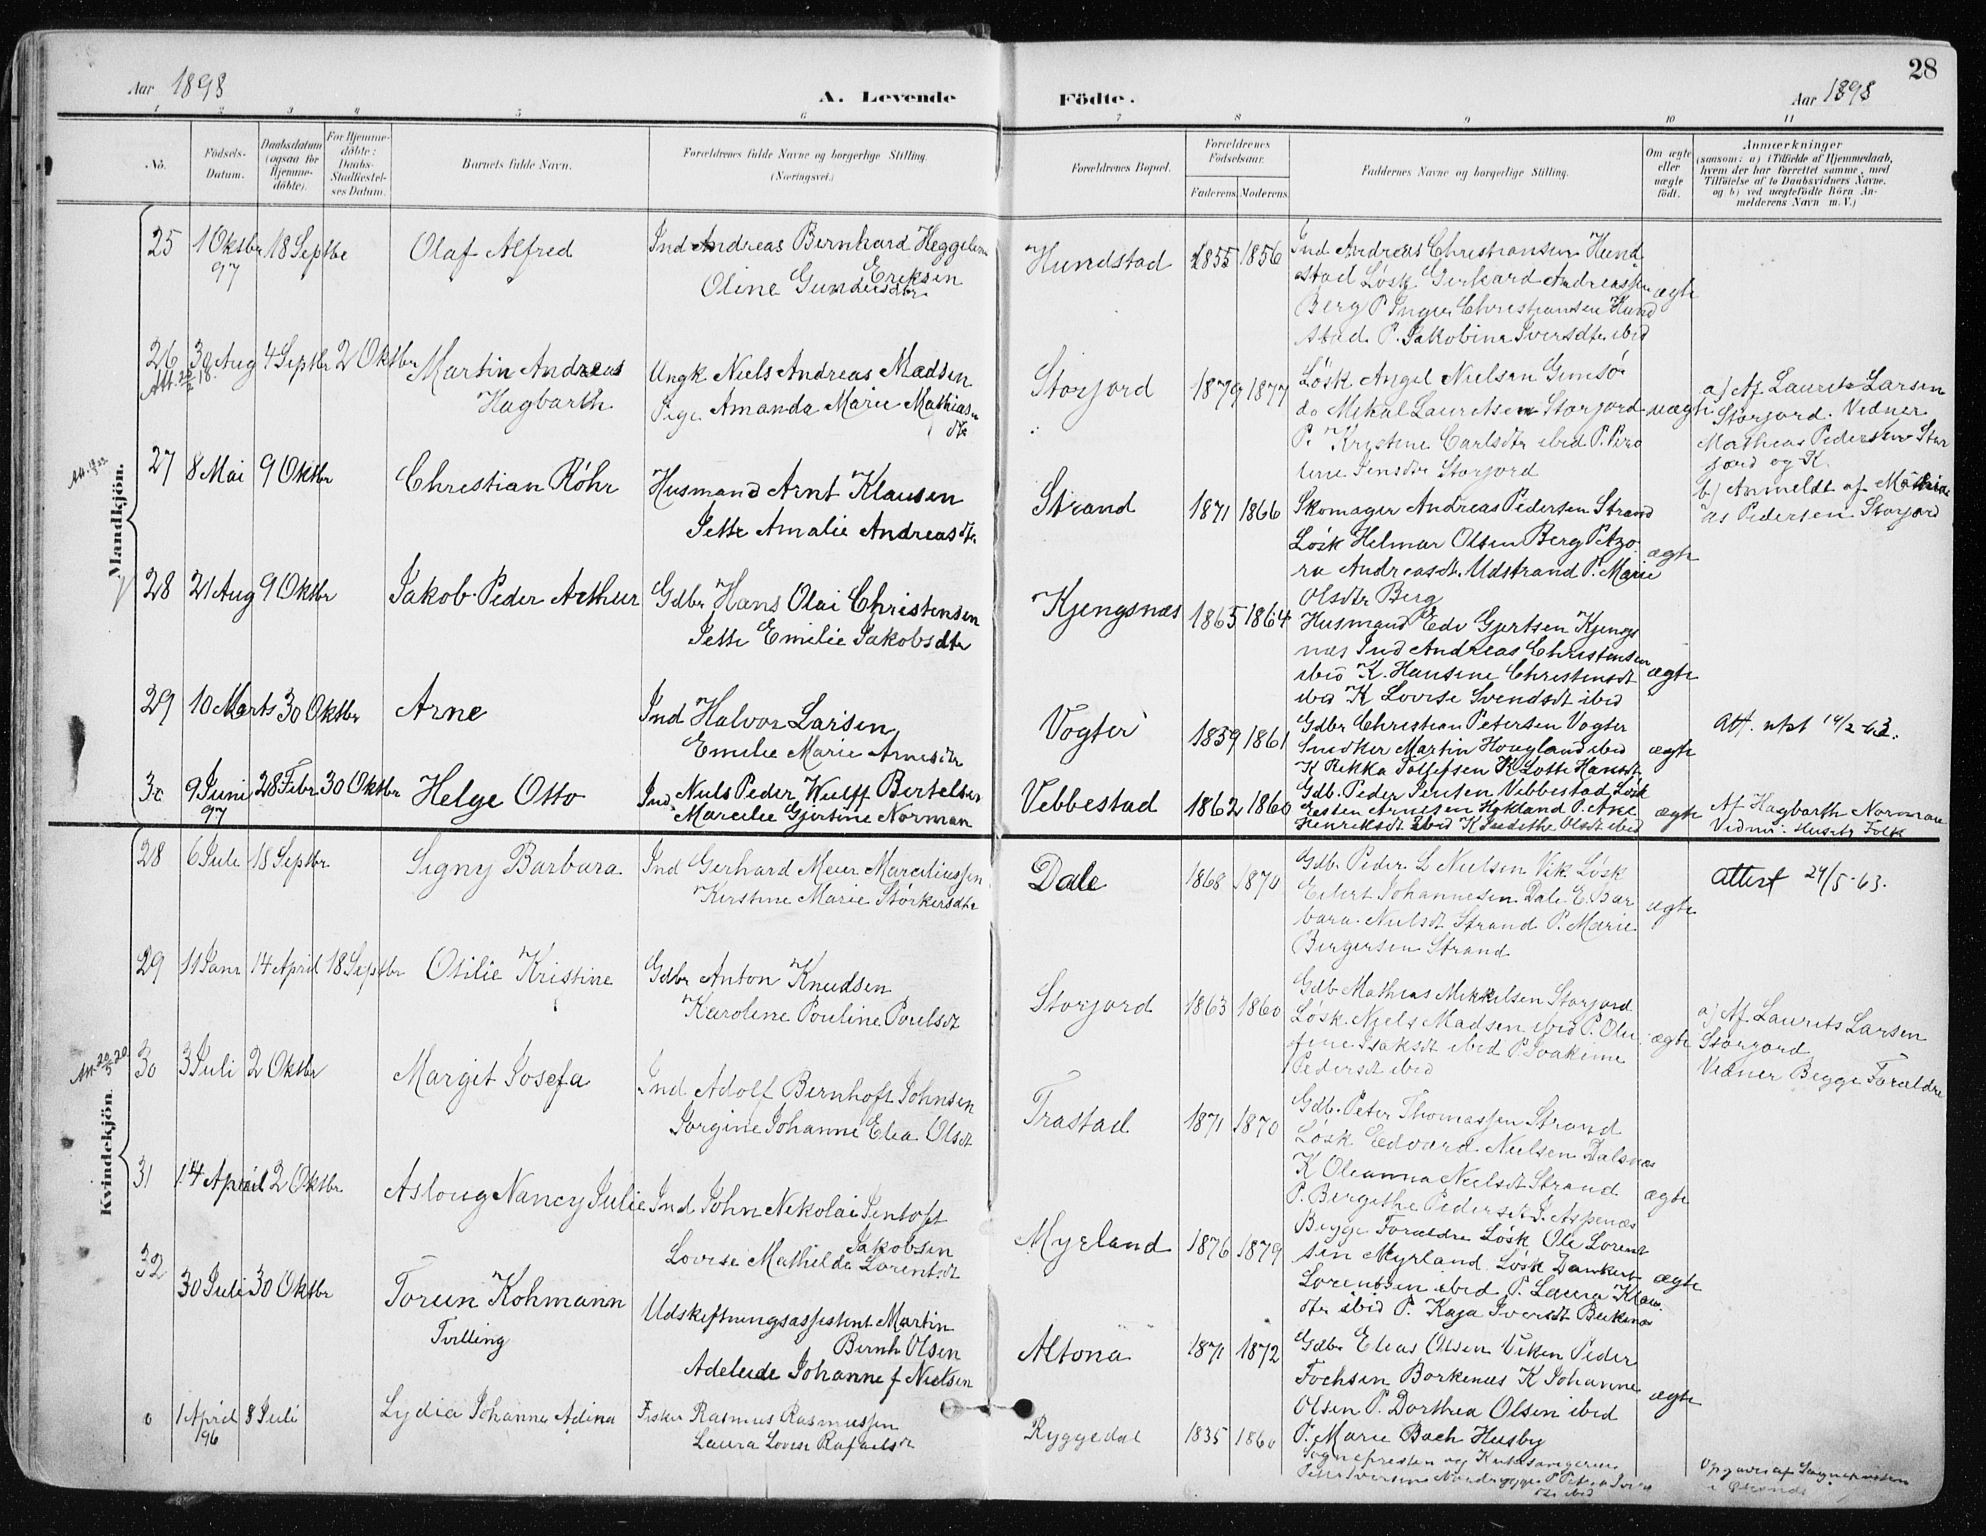 28
Aar 1898
A. Levende Födte.
Aar 1898
1 2 3 4 5 6 7 8 9 10 11
No.
Födsels-Datum.
Daabsdatum (ogsaa for Hjemme-döbte).
For Hjemme-döbte: Daabs-Stadfæstel-ses Datum.
Barnets fulde Navn.
Forældrenes fulde Navne og borgerlige Stilling. (Næringsvei.)
Forældrenes Bopæl.
Forældrenes Födselsaar.
Faderens. Moderens.
Faddernes Navne og borgerlige Stilling.
Om ægte eller uægte födt.
Anmærkninger
(saasom: a) i Tilfælde af Hjemmedaab, hvem der har forrettet samme, med Tilföielse af to Daabsvidners Navne, og b) ved uægtefödte Börn An-melderens Navn m. V.)
Mandkjön.
25 1 Oktbr 97 18 Septbr
Olaf Alfred
Ind Andreas Bernhard Heggelund
Eriksen
Oline Gundersdtr
Hundstad 1855 1856
Ind Andreas Christiansen Hund
stad Løsk Gerhard Andreassen
Berg P. Inger Christiansen Hund
stad P. Jakobine Iversdtr ibid
ægte
26 30 Aug 4 Septbr 2 Oktbr
Martin Andreas
Hagbarth
Ungk Niels Andreas Madsen
Pige Amanda Marie Mathias
dtr
Storjord 1879 1877
Løsk Angel Nielsen Gimsø
do Mikal Lauritsen Storjord
P. Krystine Carlsdtr ibid P. Pero
line Jensdtr Storjord
uægte
a) Af Laurits Larsen
Storjord. Vidner
Mathias Pedersen Stor
jord og K.
b) Anmeldt af Mathi
as Pedersen Storjord
27 8 Mai 9 Oktbr
Christian Röhr
Husmand Arnt Klausen
Jette Amalie Andreasdtr
Strand 1871 1866
Skomager Andreas Pedersen Strand
Løsk Helmar Olsen Berg P.
ra Andreasdt. Udstrand P. Marie
Olsdtr Berg
ægte
28 21 Aug 9 Oktbr
Jakob Peder Arthur
Gdbr Hans Olai Christensen
Jette Emilie Jakobsdtr
Kjengsnæs 1865 1864
Husmand Edv Gjertsen Kjengs
næs Ind Andreas Christensen
ibid K. Hansine Christensdt
ibid K Lovise Svendsdt ibid
ægte
29 10 Marts 30 Oktbr
Arne
Ind Halvor Larsen
Emilie Marie Arnesdtr
Vogter 1839 1861
Gdbr Christian Petersen Vogter
Snedker Martin Hougland ibid
K Rikka Tollefsen K Lotte Hansdt
ægte
Att. utst 14/2-63.
30 9 Juni 97 28 Febr 30 Oktbr
Helge Otto
Ind Niels Peder Wulff Bertelsen
Marcilie Gjertine Norman
Vebbestad 1862 1860
Gdb. Peder Jensen Vebbestad Løsk
Esten Arnesen Hokland P. Ane
Henriksdt ibid K Judithe Olsdt ibid
ægte
Af Hagbarth Norman
Vidner: Husets Folk
Kvindekjön.
28 6 Juli 18 Septbr
Signy Barbara
Ind Gerhard Meier Marciliussen
Kirstine Marie Størkersdtr
Dale 1868 1870
Gdb. Peder L Nielsen Vik Løsk
Eilert Johannesen Dale E. Bar
bara Nielsdt Strand P. Marie
Birgersen Strand
ægte
attest 24/5-63.
29 11 Janr 14 April 18 Septbr
Otilie Kristine
Gdbr Anton Knudsen
Karoline Pouline Poulsdt
Storjord 1863 1860
Gdb Mathias Mikkelsen Storjord
Løsk Niels Madsen ibid P. Olu
fine Isaksdt ibid P. Joakime
Pedersdt ibid
ægte
a) Af Laurits Larsen
Storjord
Vidner Begge Forældre
30 3 Juli 2 Oktbr
Margit Josefa
Ind Adolf Bernhoft Johnsen
Jorgine Johanne Elea Olsdt
Trastad 1871 1870
Gdb. Peter Thomassen Strand
Løsk Edvard Nielsen Dalsnæs
K Oleanna Nielsdt Strand
P. Bergithe Pedersdt S. Aspenæs
ægte
31 14 April 2 Oktbr
Asloug Nancy Julie
Ind John Nikolai Jentoft
Jakobsen
Lovise Mathilde Lorentsdt
Myrland 1876 1879
Begge Forældre Løsk Ole Lorent
sen Myrland Løsk Dankert
Lorentsen ibid P. Laura Klau
dtr ibid P. Kaja Iversdt
ægte
32 30 Juli 30 Oktbr
Torun Kohmann
Tvilling
Udskiftningsassistent Martin
Bernh Olsen
Adeleide Johanne f Nielsen
Altona 1871 1872
Gdbr Elias Olsen Viken Peder
Fochsen Borkenæs K Johanne
Olsen P. Dorthea Olsen ibid
P. Marie Bach Husby
ægte
0 1 April 96 8 Juli
Lydia Johanne Adina
Fisker Rasmus Rasmussen
Laura Lovise Rafaelsdt
Ryggedal 1835 1860
Sognepresten og Kirkesangeren
ibid
Opgivet af Sognepresten
i